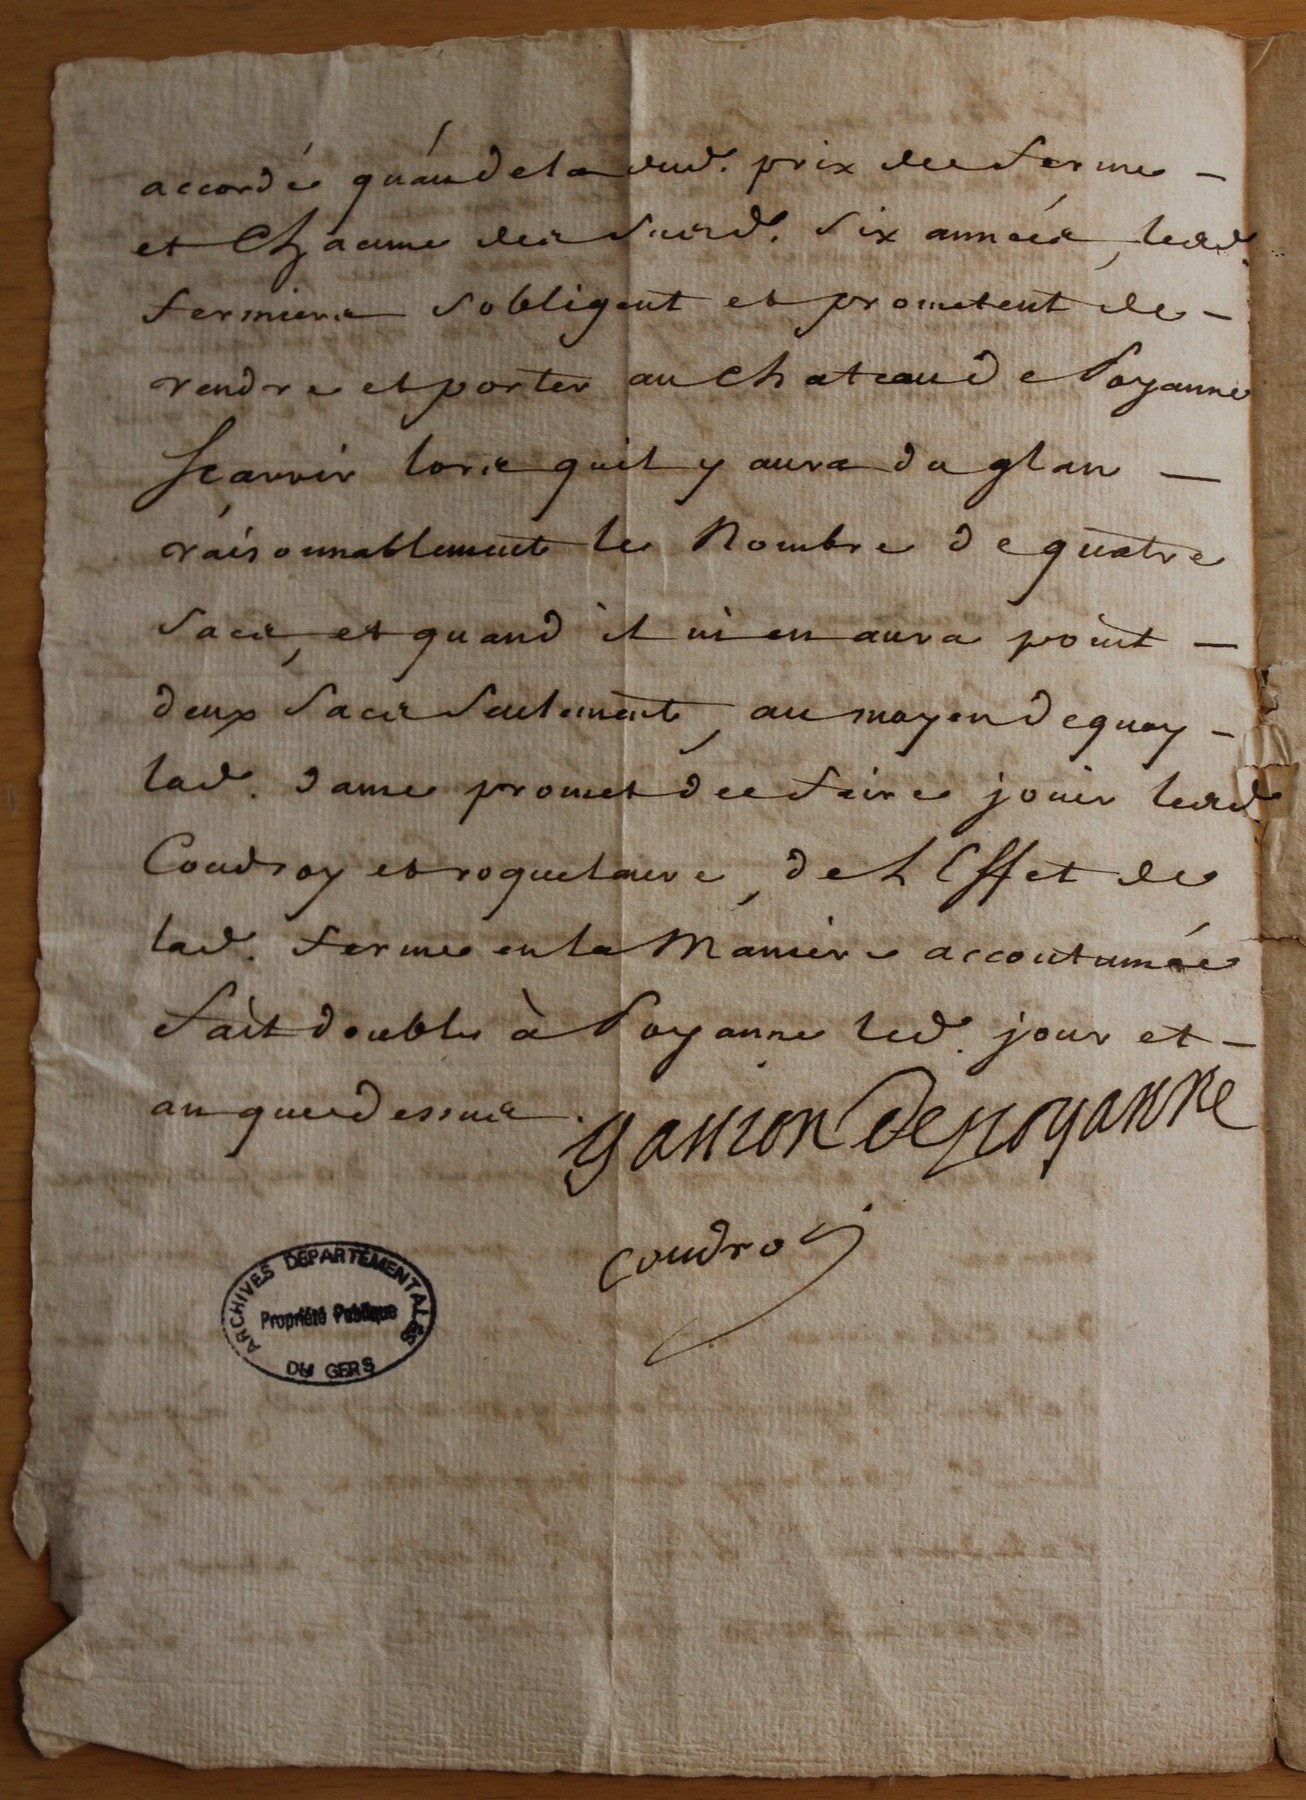 accordé qu'au dela dud. prix de ferme -
et Chacune des susd. six années, lesd.
fermiers sobligent et prometent de -
rendre et porter au chateau de Poyanne
Scavoir lors quil y aura du glan -
raisonnablement le Nombre de quatre
sacs, et quand il ni en aura point -
deux sacs seulement, au moyen dequoy -
lad. dame promet de faire jouir lesd
Coudroy et roquelaure, de L'Effet de
lad. ferme en la Maniere accoutumée
fait double à Poyanne led. jour et -
an que dessus.
gassion de poyanne
coudroy
ARCHIVES DEPARTEMENTALES
Propriété Publique
DU GERS